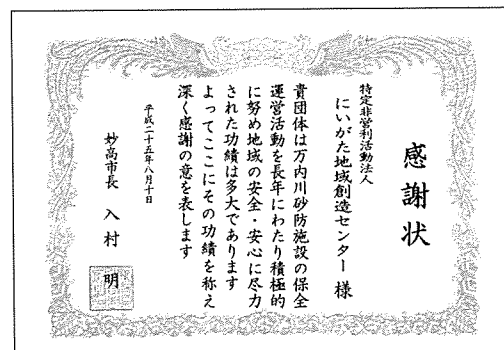 感謝状
特定非営利活動法人
にいがた地域創造センター 様
貴団体は万内川砂防施設の保全
運営活動を長年にわたり積極的
に努め地域の安全・安心に尽力
された功績は多大であります
よってここにその功績を称え
深く感謝の意を表します
平成二十五年八月十日
妙高市長 入村 明